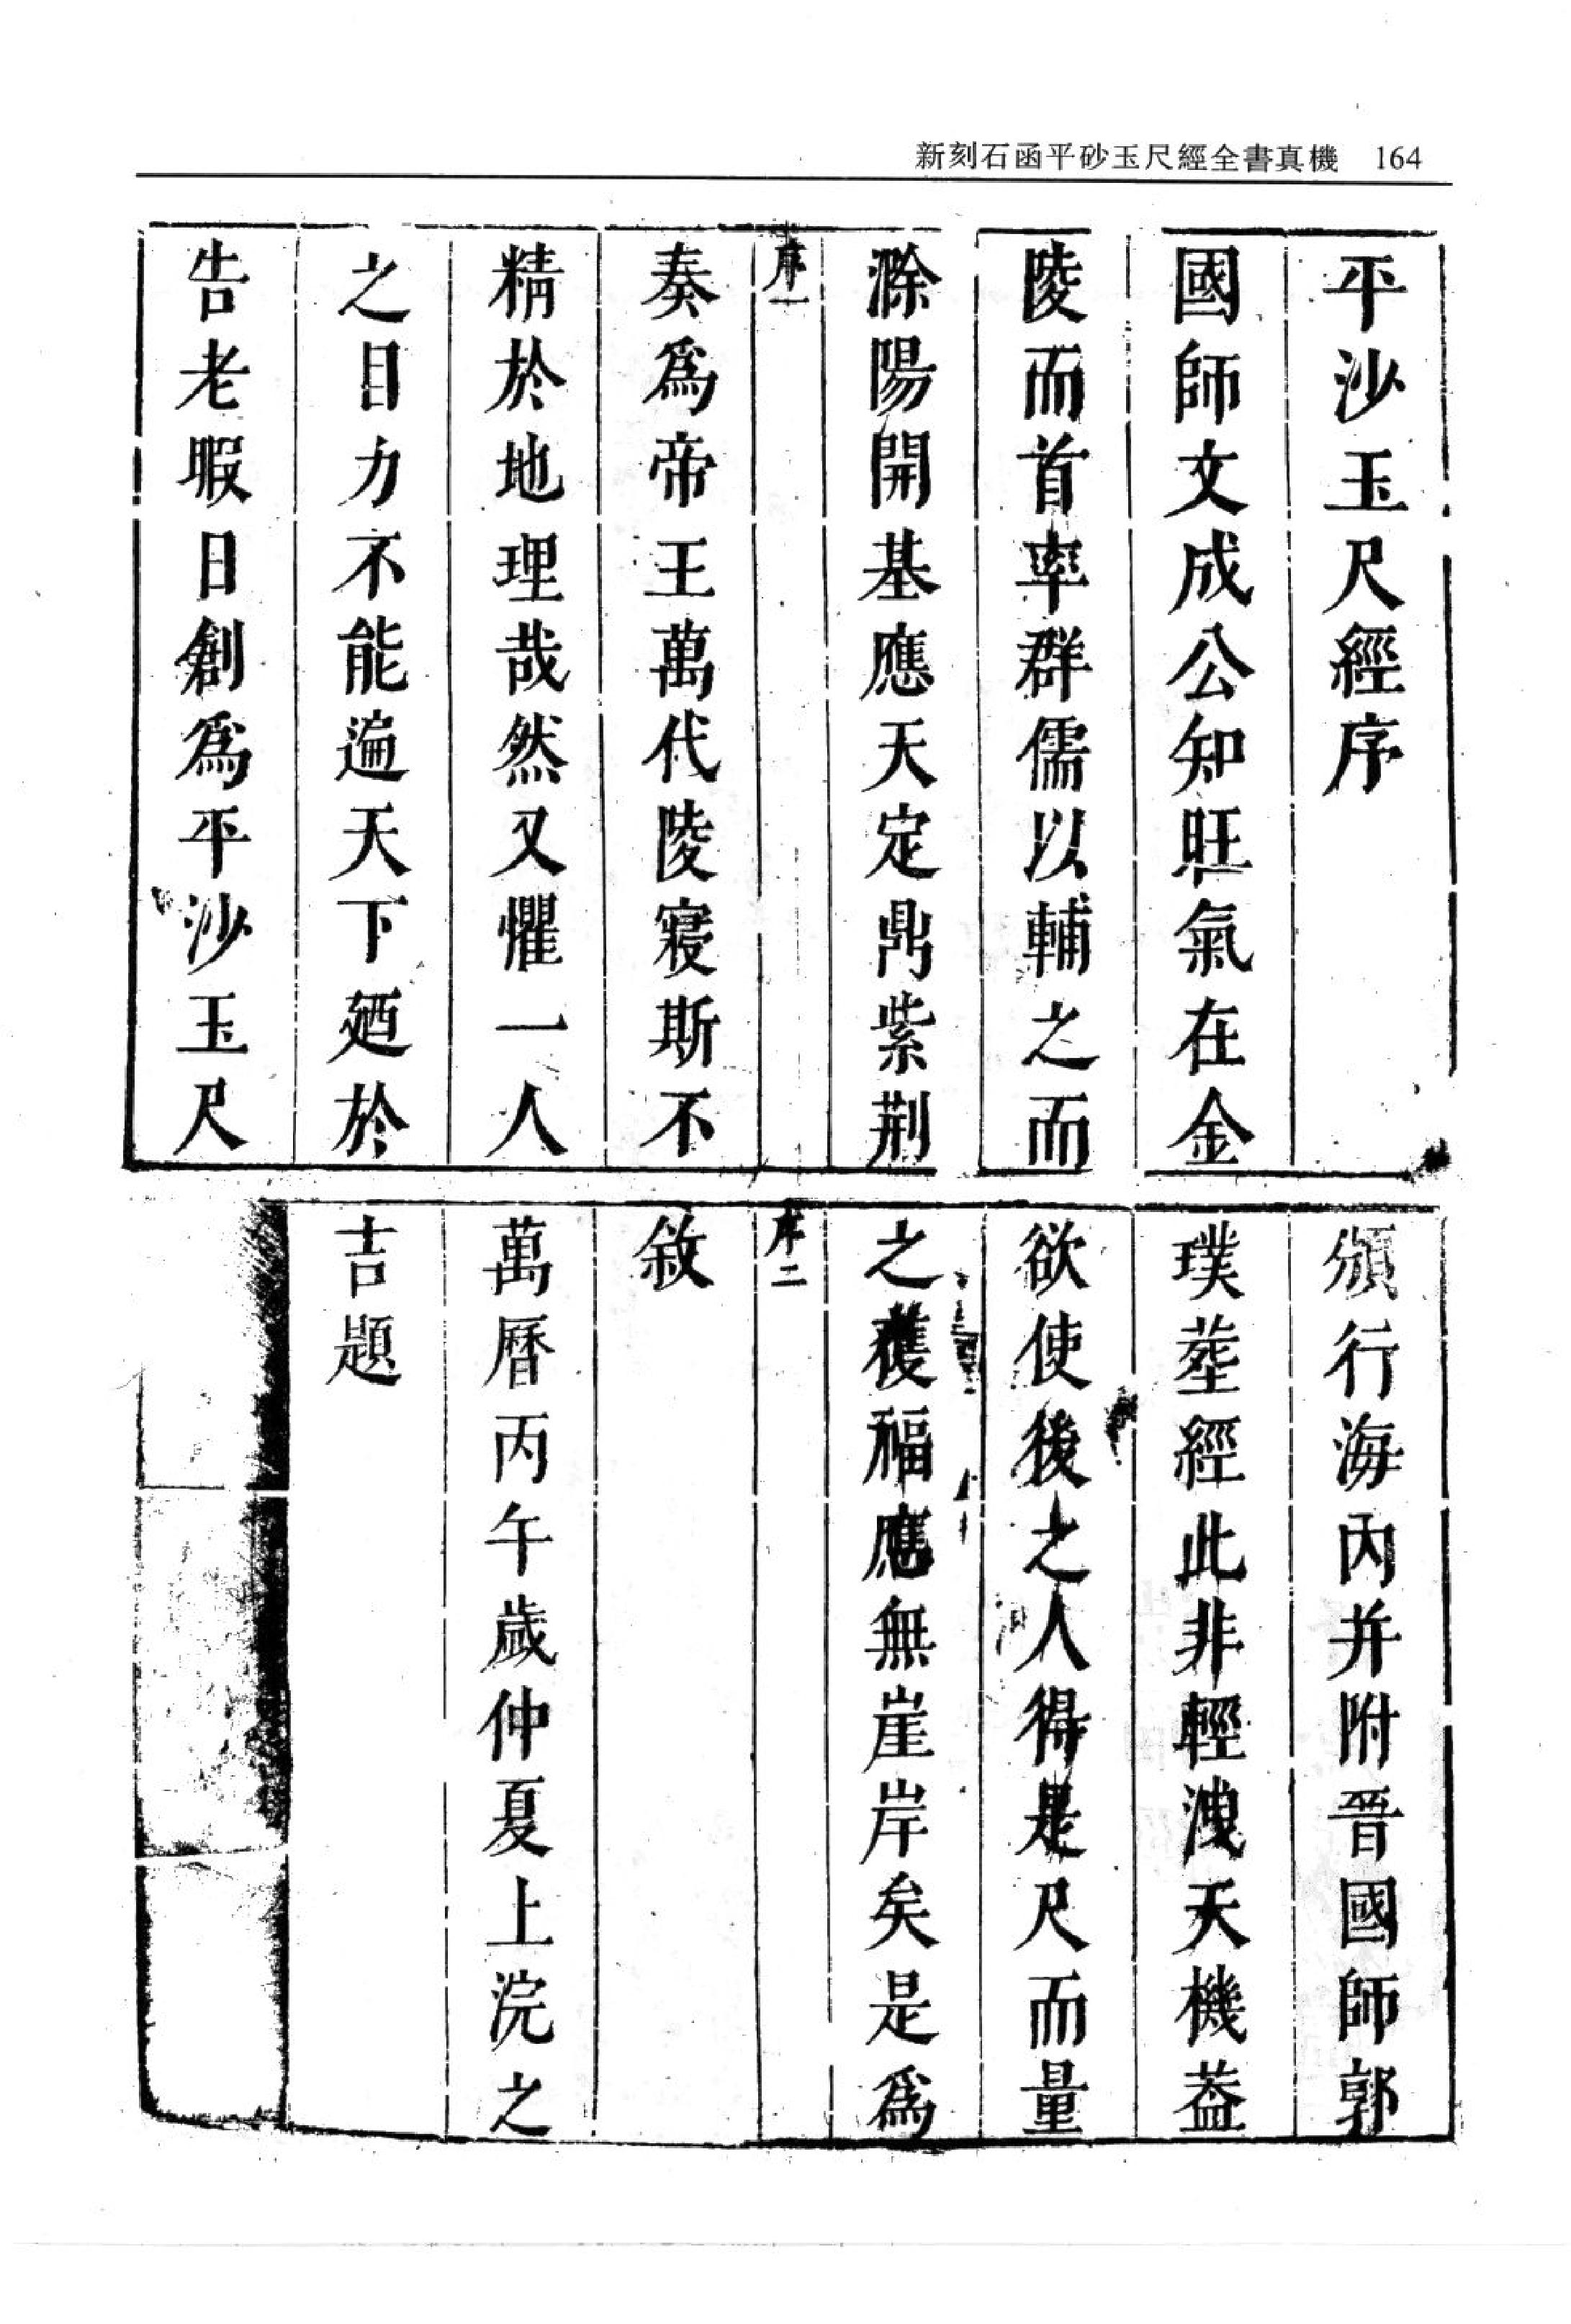 新刻石函平砂玉尺經全書真機 164
平沙玉尺經序
國師文成公知旺氣在金
陵而首率群儒以輔之而
滁陽開基應天定鼎紫荆
序一
奏爲帝王萬代陵寢斯不
精於地理哉然又懼一人
之目力不能遍天下廼於
告老暇日創爲平沙玉尺
頒行海內并附晉國師郭
璞塟經此非輕洩天機葢
欲使後之人得是尺而量
之獲福應無崖岸矣是爲
序二
敘
萬曆丙午歲仲夏上浣之
吉題